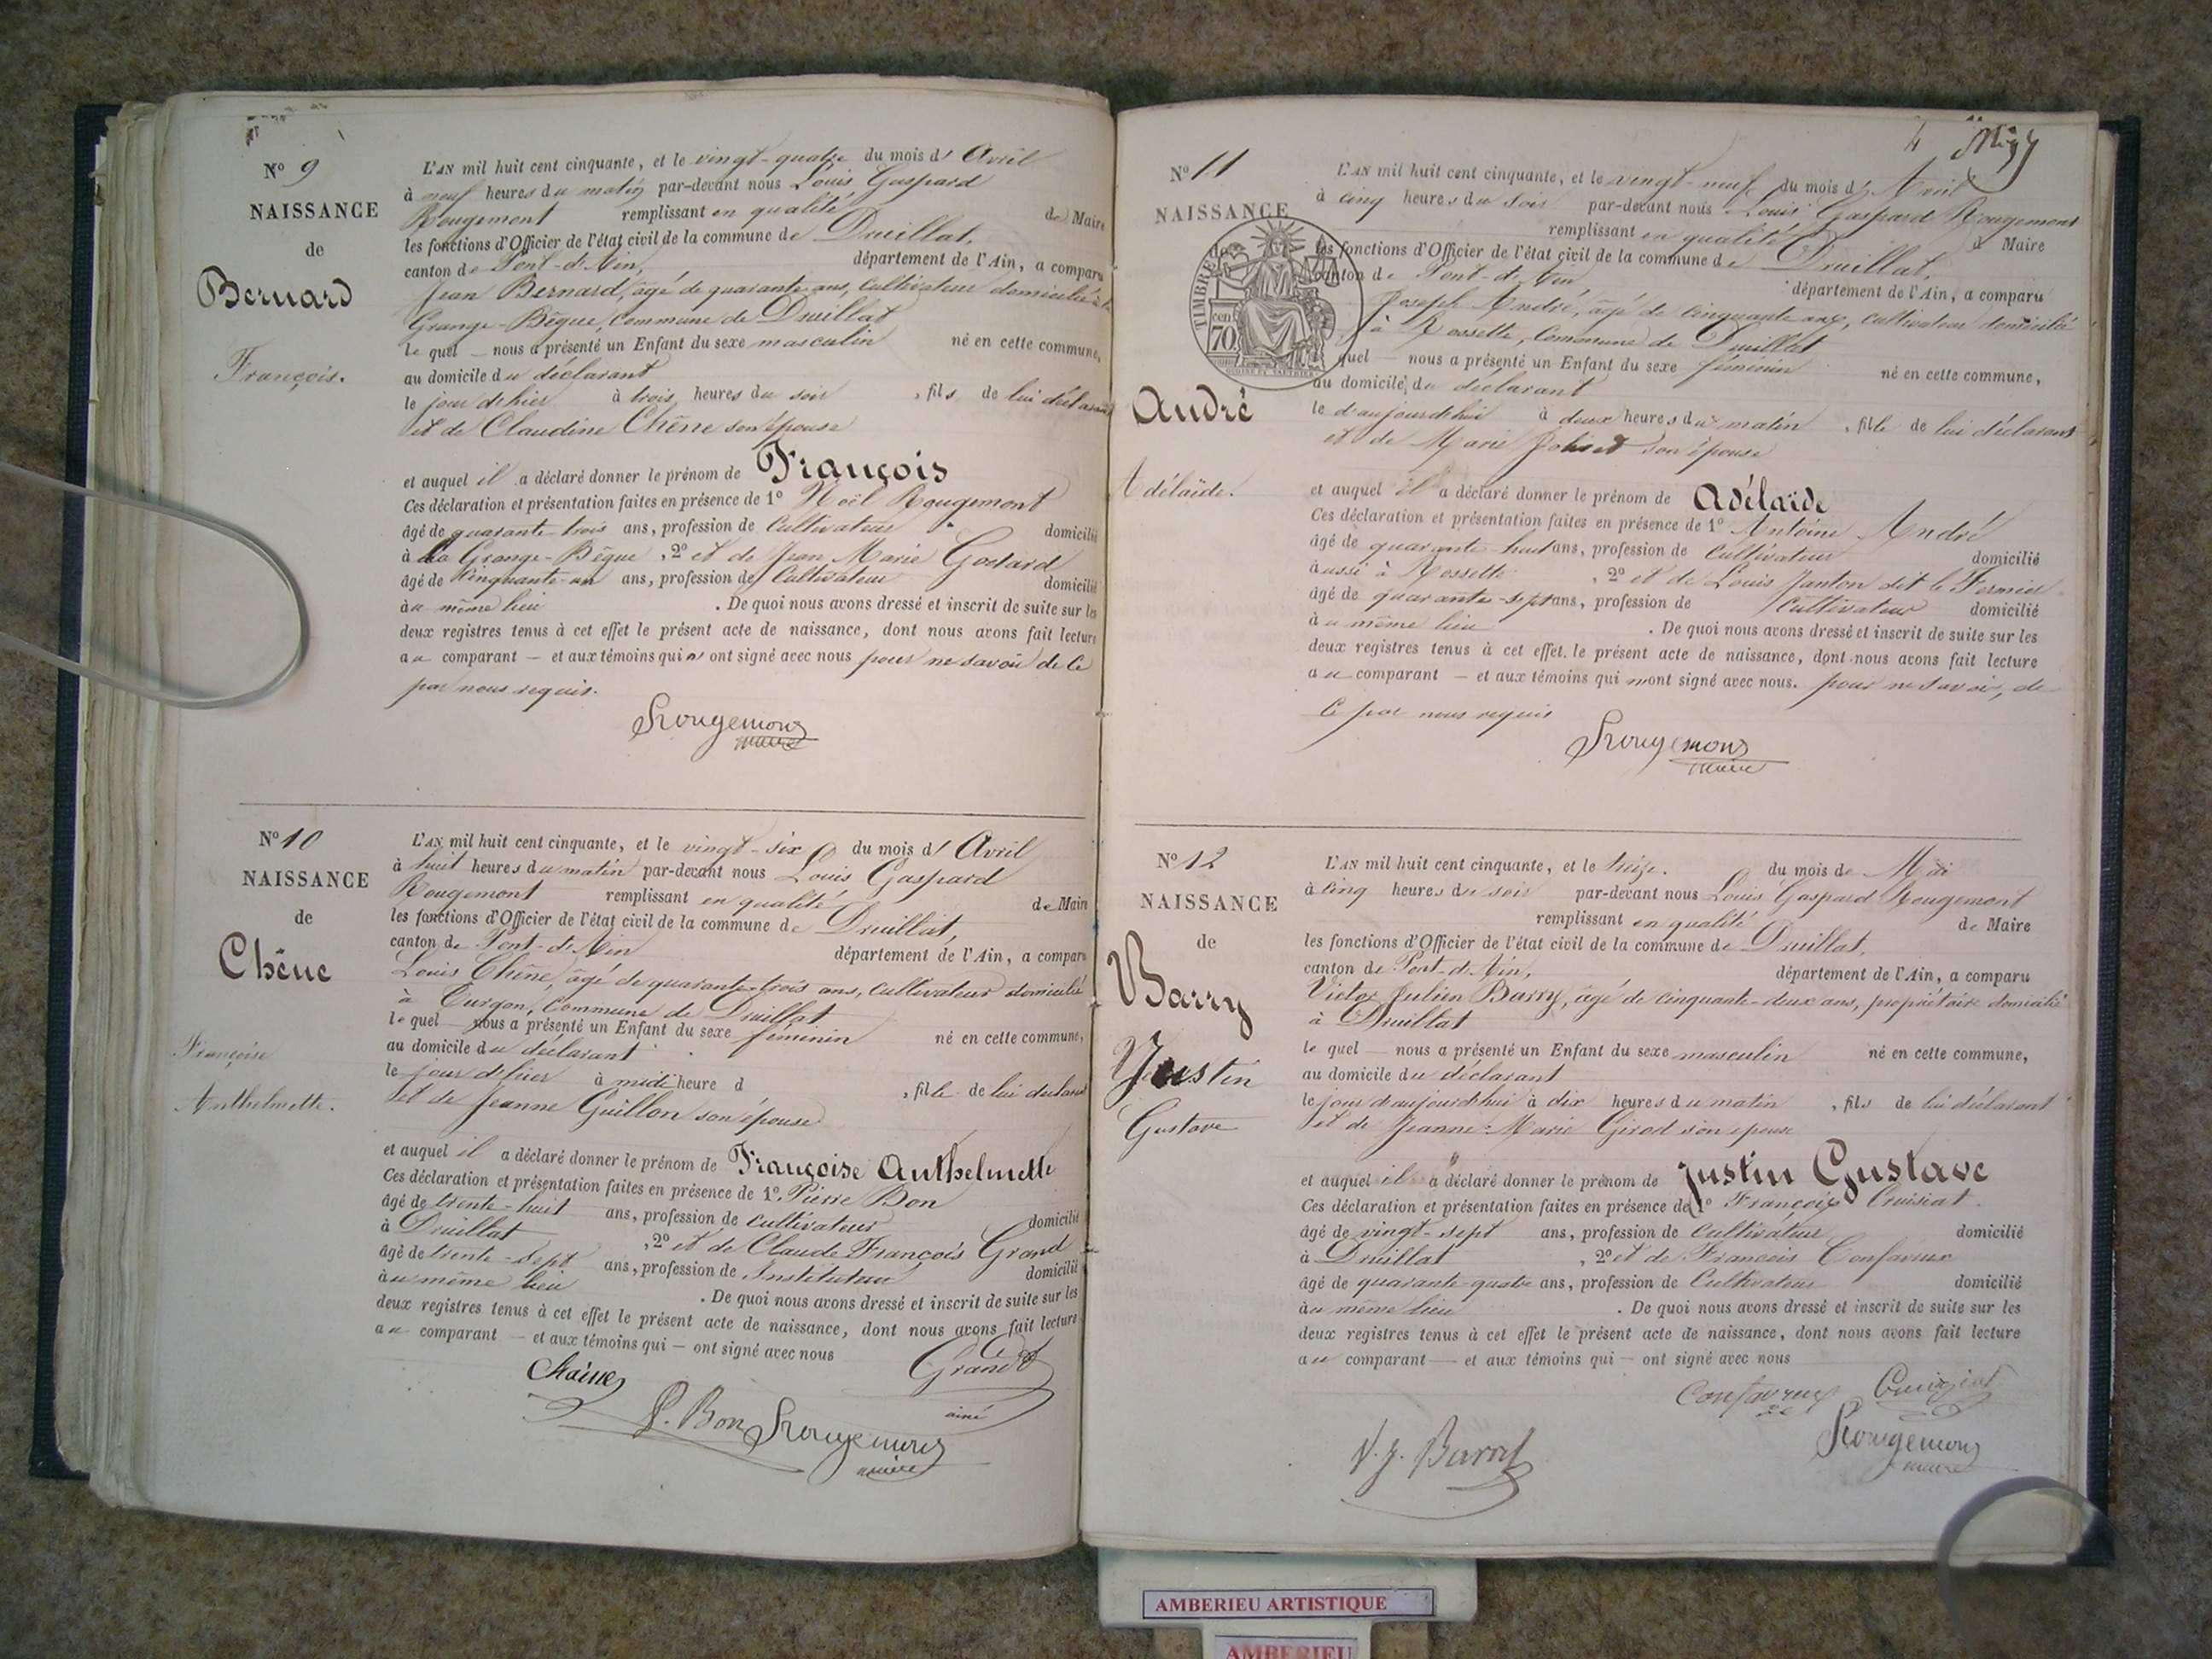 No 9
NAISSANCE
de
Bernard
François.
L'AN mil huit cent cinquante, et le vingt-quatre du mois d'Avril
à neuf heures du matin par-devant nous Louis Gaspard
Rougemont remplissant en qualité de Maire
les fonctions d'Officier de l'état civil de la commune de Druillat,
canton de Pont-d'Ain, département de l'Ain, a comparu
Jean Bernard, âgé de quarante ans, cultivateur domicilié à la
Grange-Bègue, commune de Druillat
le quel — nous a présenté un Enfant du sexe masculin né en cette commune,
au domicile du déclarant
le jour d'hier à trois heures du soir, fils de lui déclarant
et de Claudine Chêne son épouse
et auquel il a déclaré donner le prénom de François
Ces déclaration et présentation faites en présence de 1º Noël Rougemont
âgé de quarante-trois ans, profession de Cultivateur domicilié
à La Grange-Bègue, 2º et de Jean Marie Godard
âgé de Cinquante-un ans, profession de Cultivateur domicilié
au même lieu . De quoi nous avons dressé et inscrit de suite sur les
deux registres tenus à cet effet le présent acte de naissance, dont nous avons fait lecture
au comparant — et aux témoins qui n'ont signé avec nous pour ne savoir de ce
par nous requis.
Rougemont
maire
No 10
NAISSANCE
de
Chêne
Françoise
Anthelmette.
L'AN mil huit cent cinquante, et le vingt-six du mois d'Avril
à huit heures du matin par-devant nous Louis Gaspard
Rougemont remplissant en qualité de Maire
les fonctions d'Officier de l'état civil de la commune de Druillat,
canton de Pont-d'Ain département de l'Ain, a comparu
Louis Chêne, âgé de quarante-trois ans, cultivateur domicilié
à Turgon, commune de Druillat
le quel nous a présenté un Enfant du sexe féminin né en cette commune,
au domicile du déclarant
le jour d'hier à midi heure d , fille de lui déclarant
et de Jeanne Guillon son épouse
et auquel il a déclaré donner le prénom de Françoise Anthelmette
Ces déclaration et présentation faites en présence de 1º Pierre Bon
âgé de trente-huit ans, profession de cultivateur domicilié
à Druillat, 2º et de Claude François Grand
âgé de trente-sept ans, profession de Instituteur domicilié
au même lieu . De quoi nous avons dressé et inscrit de suite sur les
deux registres tenus à cet effet le présent acte de naissance, dont nous avons fait lecture
au comparant — et aux témoins qui — ont signé avec nous
Chaine Grand
aîné
P. Bon Rougemont
maire
4
No 11
NAISSANCE
de
TIMBRE
70 cen
André
Adélaïde.
L'AN mil huit cent cinquante, et le vingt-neuf du mois d'Avril
à cinq heures du soir par-devant nous Louis Gaspard Rougemont
remplissant en qualité d Maire
les fonctions d'Officier de l'état civil de la commune de Druillat,
canton de Pont-d'Ain département de l'Ain, a comparu
Joseph André, âgé de cinquante ans, cultivateur domicilié
à Rossette, commune de Druillat
quel — nous a présenté un Enfant du sexe féminin né en cette commune,
au domicile du déclarant
le d'aujourd'hui à deux heures du matin, fille de lui déclarant
et de Marie son épouse
et auquel il a déclaré donner le prénom de Adélaïde
Ces déclaration et présentation faites en présence de 1º Antoine André
âgé de quarante-huit ans, profession de Cultivateur domicilié
aussi à Rossette, 2º et de Louis Janton dit le Fermier
âgé de quarante-sept ans, profession de Cultivateur domicilié
au même lieu . De quoi nous avons dressé et inscrit de suite sur les
deux registres tenus à cet effet, le présent acte de naissance, dont nous avons fait lecture
au comparant — et aux témoins qui n'ont signé avec nous. pour ne savoir, de
ce par nous requis
Rougemont
maire
No 12
NAISSANCE
de
Barry
Justin
Gustave
L'AN mil huit cent cinquante, et le treize. du mois de Mai
à cinq heures du soir par-devant nous Louis Gaspard Rougemont
remplissant en qualité de Maire
les fonctions d'Officier de l'état civil de la commune de Druillat,
canton de Pont-d'Ain, département de l'Ain, a comparu
Victor Julien Barry, âgé de cinquante-deux ans, propriétaire domicilié
à Druillat
le quel — nous a présenté un Enfant du sexe masculin né en cette commune,
au domicile du déclarant
le jour d'aujourd'hui à dix heures du matin, fils de lui déclarant
et de Jeanne-Marie Girod son épouse
et auquel il a déclaré donner le prénom de Justin Gustave
Ces déclaration et présentation faites en présence de 1º François Cruisiat
âgé de vingt-sept ans, profession de Cultivateur domicilié
à Druillat, 2º et de François Confavreux
âgé de quarante-quatre ans, profession de Cultivateur domicilié
au même lieu . De quoi nous avons dressé et inscrit de suite sur les
deux registres tenus à cet effet le présent acte de naissance, dont nous avons fait lecture
au comparant — et aux témoins qui — ont signé avec nous
Confavreux Cruiziat
V. J. Barry
Rougemont
maire
AMBERIEU ARTISTIQUE
AMBERIEU